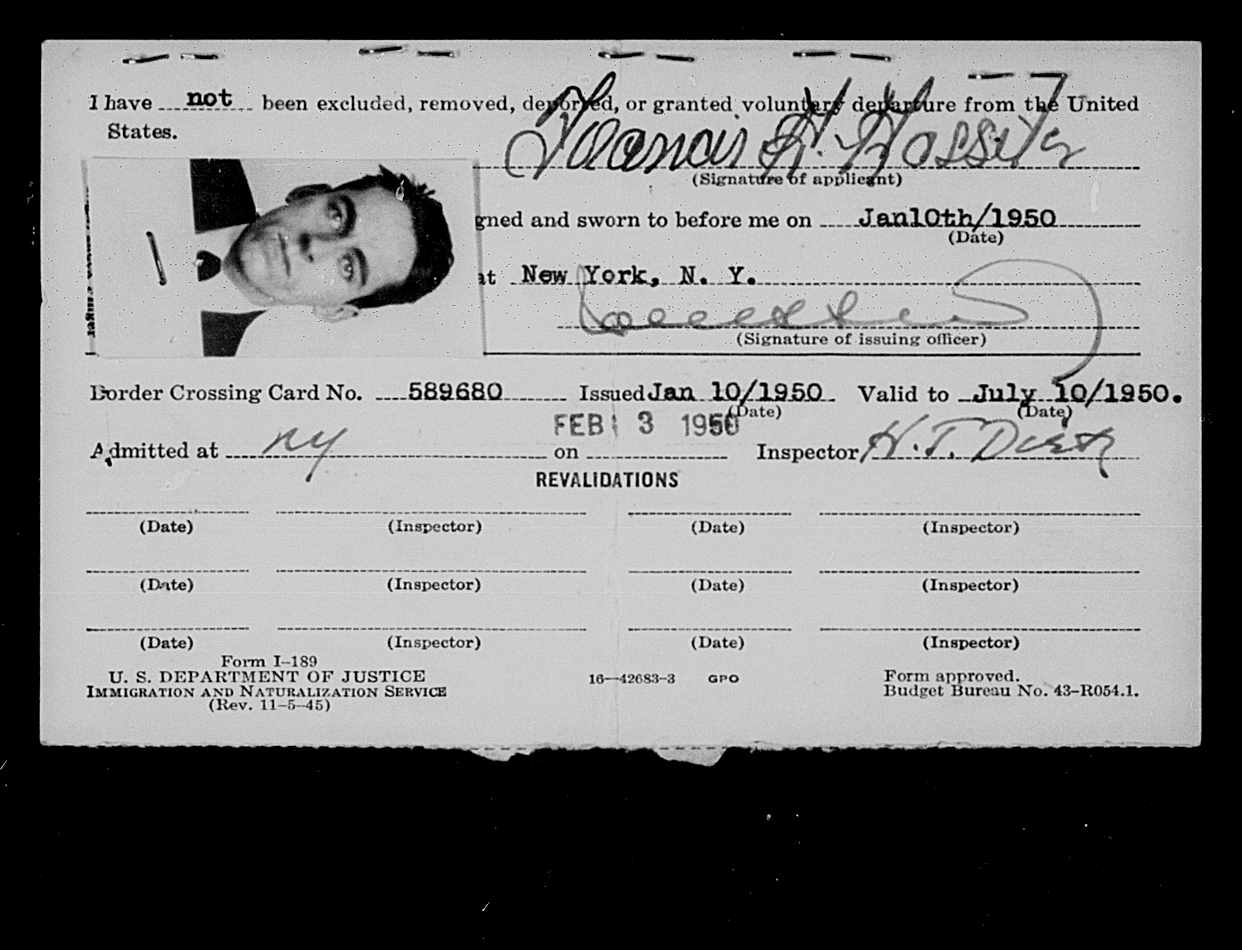 I have not been excluded, removed, deported, or granted voluntary departure from the United
States.
Francis H.
(Signature of applicant)
gned and sworn to before me on Jan10th/1950
(Date)
at New York, N. Y.
(Signature of issuing officer)
Border Crossing Card No. 589680 Issued Jan 10/1950 Valid to July 10/1950.
(Date) (Date)
FEB 3 1950
Admitted at NY on Inspector H. T.
REVALIDATIONS
(Date) (Inspector) (Date) (Inspector)
(Date) (Inspector) (Date) (Inspector)
(Date) (Inspector) (Date) (Inspector)
Form I-189
U. S. DEPARTMENT OF JUSTICE
IMMIGRATION AND NATURALIZATION SERVICE
(Rev. 11-5-45)
16—42683-3 GPO
Form approved.
Budget Bureau No. 43-R054.1.